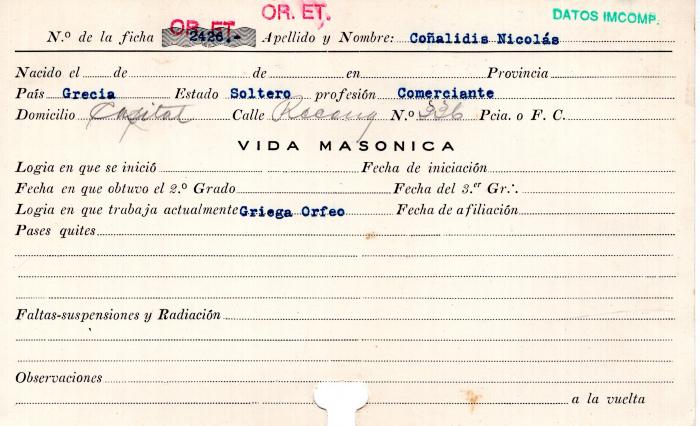 OR. ET. OR. ET. DATOS IMCOMP.
N.º de la ficha 2426.- Apellido y Nombre: Coñalidis Nicolás
Nacido el de de en Provincia
País Grecia Estado Soltero profesión Comerciante
Domicilio Capital Calle N.º 336 Pcia. o F. C.
VIDA MASONICA
Logia en que se inició Fecha de iniciación
Fecha en que obtuvo el 2.º Grado Fecha del 3.er Gr∴
Logia en que trabaja actualmente Griega Orfeo Fecha de afiliación
Pases quites
Faltas-suspensiones y Radiación
Observaciones
a la vuelta